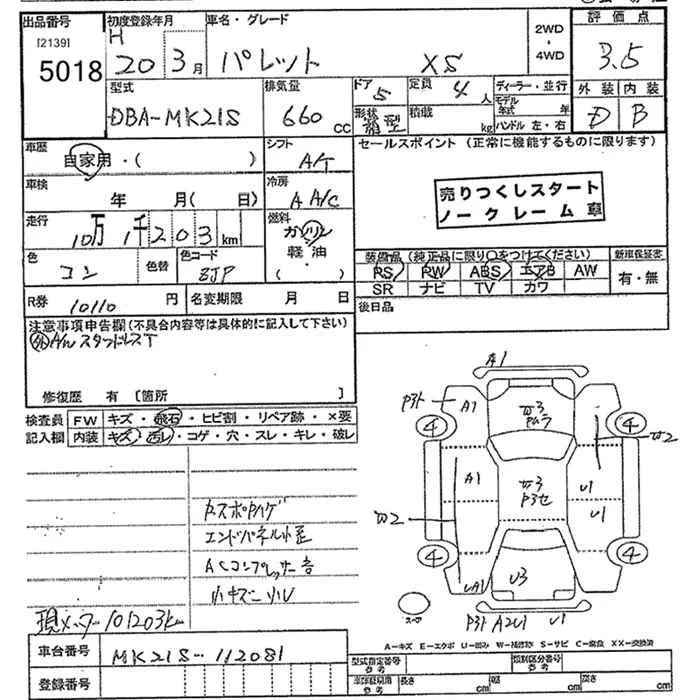 出品番号 初度登録年月 車名・グレード 2WD・4WD 評価点
[2139] H
5018 20 3月 パレット XS 3.5
型式 排気量 ドア 定員 ディーラー・並行 外装 内装
DBA-MK21S 660cc 5 4人 モデル年式 年 D B
形状 積載 kg ハンドル 左・右
車歴 自家用・( ) シフト A/T セールスポイント (正常に機能するものに限ります)
車検 年 月( 日) 冷房 A A/C
売りつくしスタート
ノークレーム車
走行 10万1千203km 燃料 ガソリン 軽油 ( )
色 コン 色替 色コード ZJP
装備品(純正品に限り○をつけてください) 新車保証書
RS PW ABS エアB AW 有・無
SR ナビ TV カワ
R券 10110円 名変期限 月 日 後日品
注意事項申告欄(不具合内容等は具体的に記入して下さい)
外 A/W スタッドレスT
修復歴 有 [箇所 ]
検査員 FW キズ・飛石・ヒビ割・リペア跡・×要
記入欄 内装 キズ・汚レ・コゲ・穴・スレ・キレ・破レ
エンドパネル小歪
ACコンプレッサー音
小キズ 小凹
現メーター101203km
A1
P3ト A1 W3 4 4
W2
A1 W3 U1
U1
W2
4 4
UA1 U3
スペア P3ト A2U1 U1
A-キズ E-エクボ U-凹み W-補修跡 S-サビ C-腐食 XX-交換済
車台番号 MK21S-112081
型式指定番号 参考 類別区分番号 参考
登録番号
長さ cm 幅 cm 高さ cm